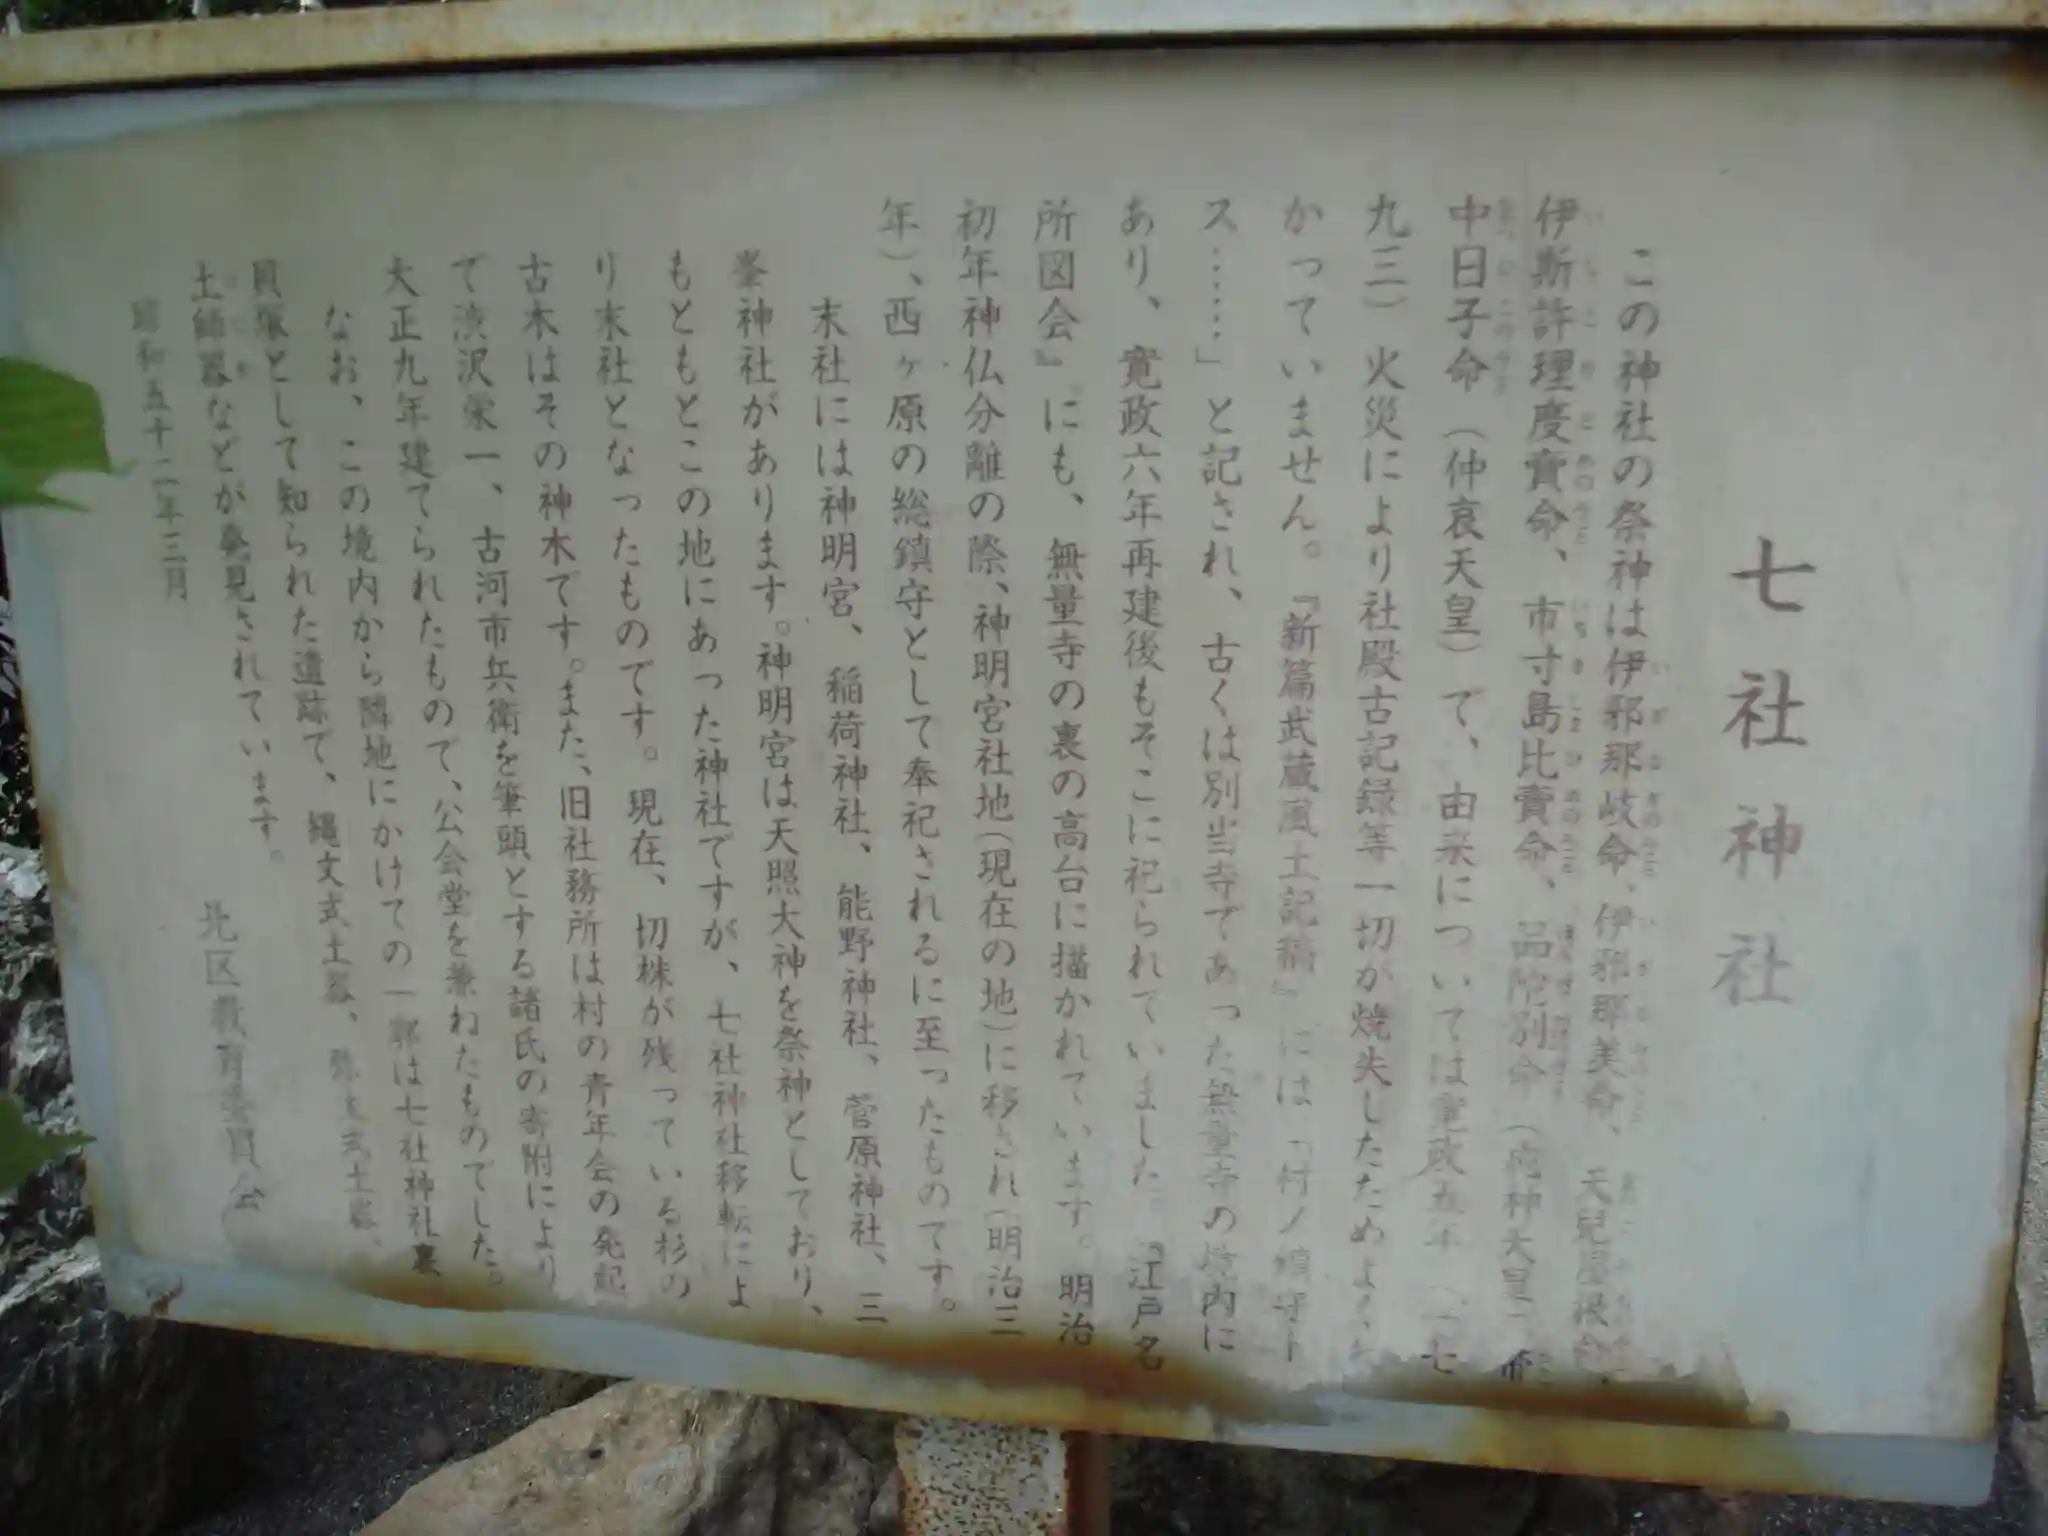 七社神社
この神社の祭神は伊邪那岐命、伊邪那美命、天児屋根命、
伊斯許理度賣命、市寸島比賣命、品陀別命（応神天皇）、帯
中日子命（仲哀天皇）で、由来については寛政五年（一七
九三）火災により社殿古記録等一切が焼失したためよくわ
かっていません。『新篇武蔵風土記稿』には「村ノ鎮守ト
ス……」と記され、古くは別当寺であった無量寺の境内に
あり、寛政六年再建後もそこに祀られていました。『江戸名
所図会』にも、無量寺の裏の高台に描かれています。明治
初年神仏分離の際、神明宮社地（現在の地）に移され（明治三
年）、西ヶ原の総鎮守として奉祀されるに至ったものです。
末社には神明宮、稲荷神社、能野神社、菅原神社、三
峯神社があります。神明宮は天照大神を祭神としており、
もともとこの地にあった神社ですが、七社神社移転によ
り末社となったものです。現在、切株が残っている杉の
古木はその神木です。また、旧社務所は村の青年会の発起
で渋沢栄一、古河市兵衛を筆頭とする諸氏の寄附により
大正九年建てられたもので、公会堂を兼ねたものでした。
なお、この境内から隣地にかけての一郭は七社神社裏
貝塚として知られた遺跡で、縄文式土器、弥生式土器、
土師器などが発見されています。
昭和五十二年三月
北区教育委員会